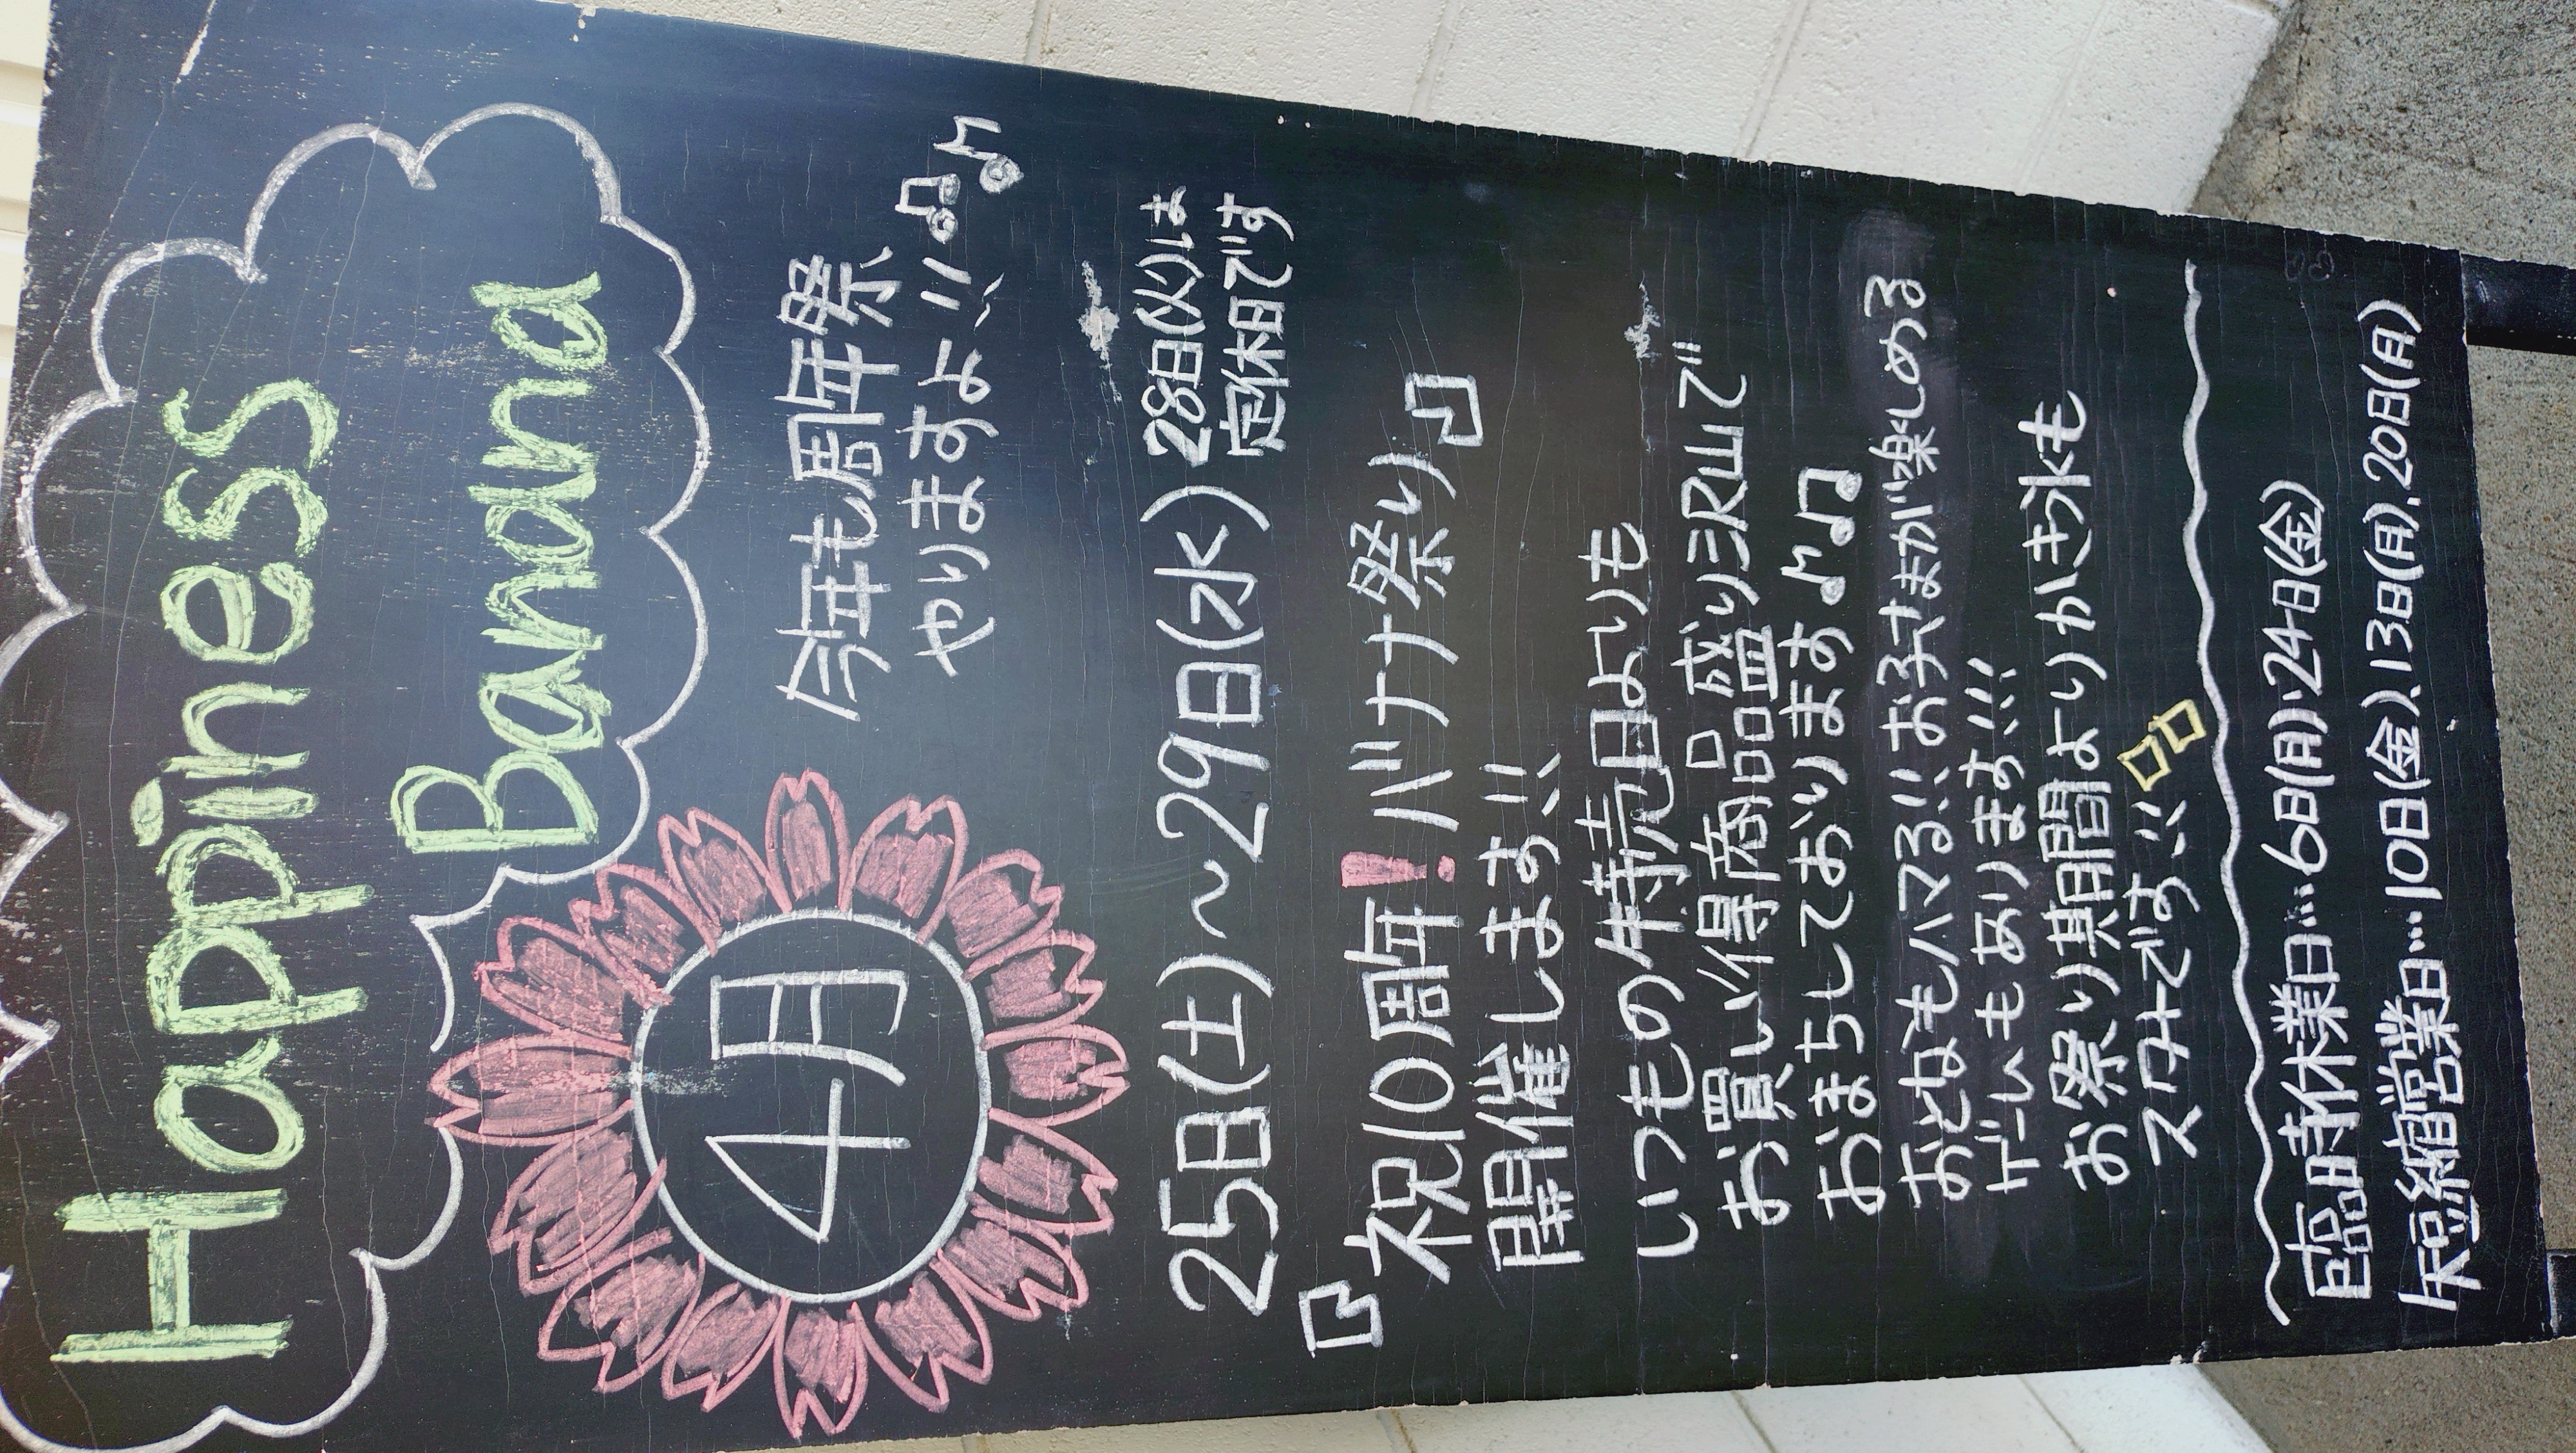 Happiness
Banana
4月
今年も周年祭
やりますよ!!
25日(土)～29日(水)
28日(火)は
定休日です
『祝10周年!バナナ祭り』
開催します!!
いつもの特売日よりも
お買い得商品盛り沢山で
おまちしております
おとなもハマる!!お子さまが楽しめる
ゲームもあります!!!
お祭り期間よりかき氷も
スタートです!!
臨時休業日…6日(月)、24日(金)
短縮営業日…10日(金)、13日(月)、20日(月)